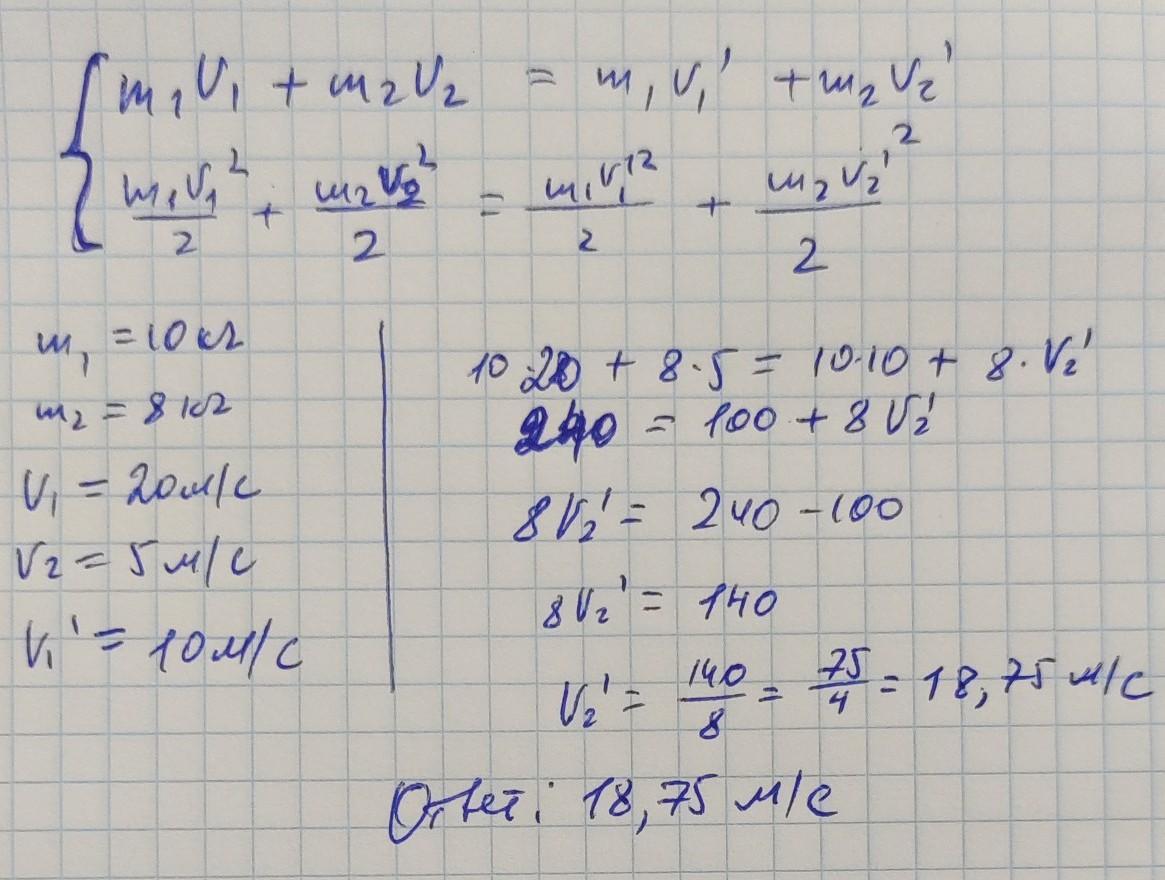 m₁V₁ + m₂V₂ = m₁V₁' + m₂V₂'
m₁V₁²/2 + m₂V₂²/2 = m₁V₁'²/2 + m₂V₂'²/2
m₁ = 10 кг
m₂ = 8 кг
V₁ = 20 м/с
V₂ = 5 м/с
V₁' = 10 м/с
10·20 + 8·5 = 10·10 + 8·V₂'
240 = 100 + 8V₂'
8V₂' = 240 - 100
8V₂' = 140
V₂' = 140/8 = 75/4 = 18,75 м/с
Ответ: 18,75 м/с